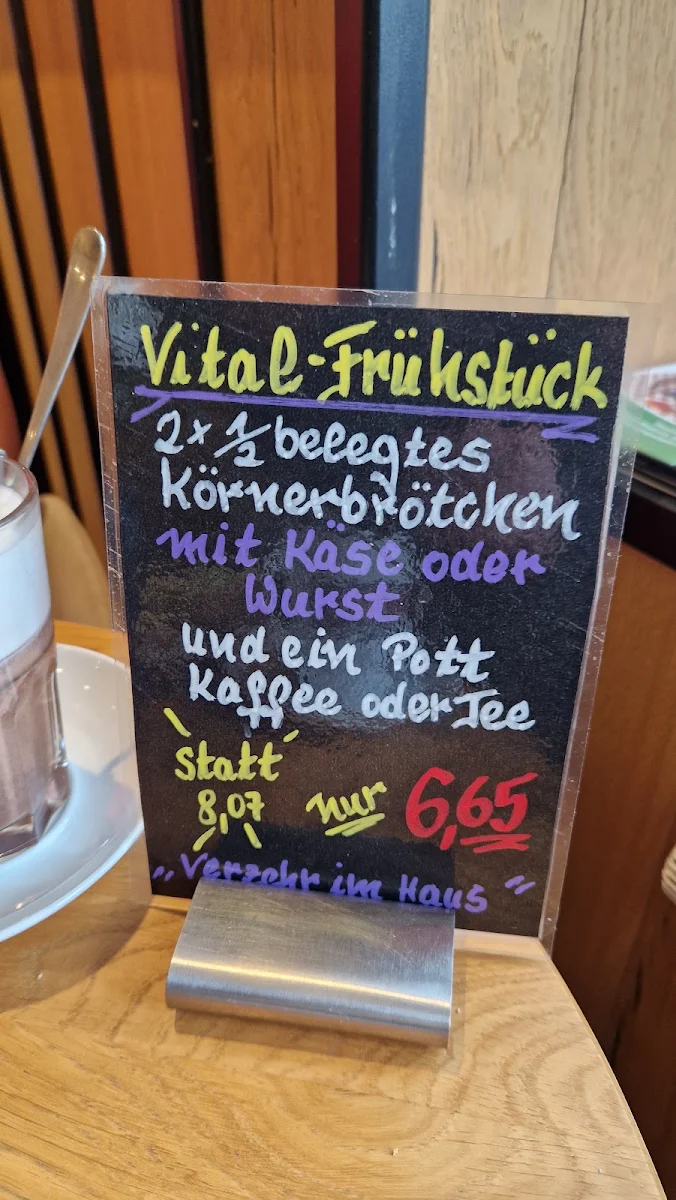 Vital-Frühstück
2x ½ belegtes
Körnerbrötchen
mit Käse oder
Wurst
und ein Pott
Kaffee oder Tee
statt
8,07 nur 6,65
„Verzehr im Haus"